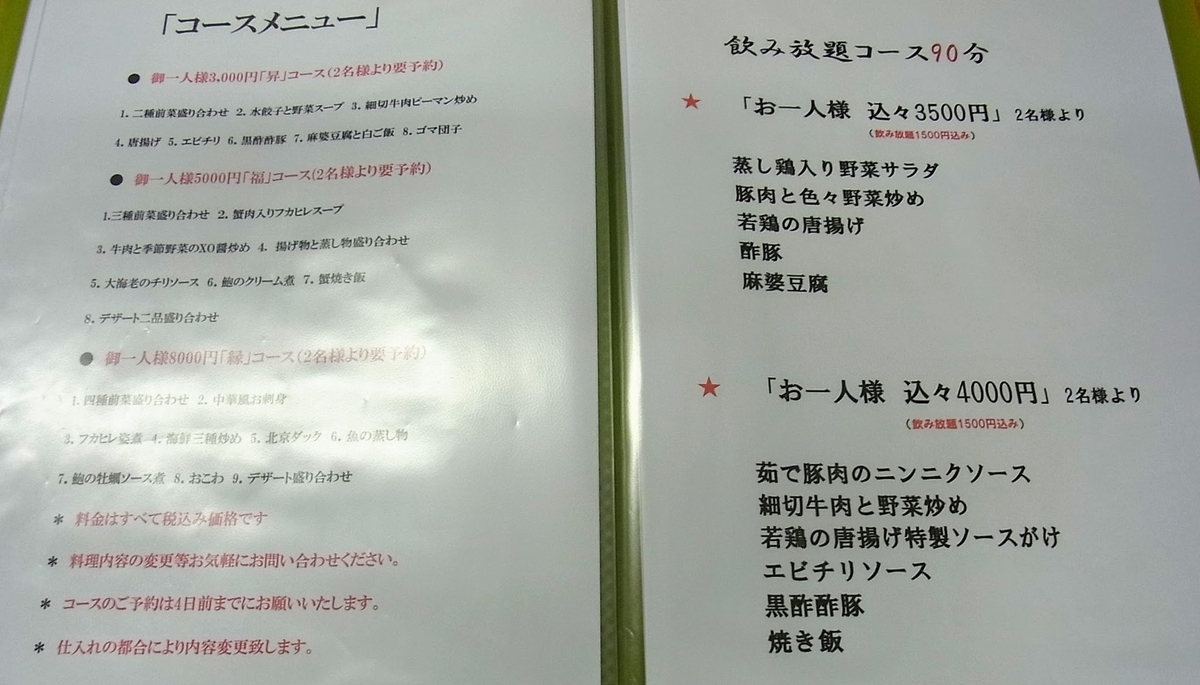 「コースメニュー」
● 御一人様3,000円「昇」コース(2名様より要予約)
1. 二種前菜盛り合わせ 2. 水餃子と野菜スープ 3. 細切牛肉ピーマン炒め
4. 唐揚げ 5. エビチリ 6. 黒酢酢豚 7. 麻婆豆腐と白ご飯 8. ゴマ団子
● 御一人様5000円「福」コース(2名様より要予約)
1.三種前菜盛り合わせ 2. 蟹肉入りフカヒレスープ
3. 牛肉と季節野菜のXO醤炒め 4. 揚げ物と蒸し物盛り合わせ
5. 大海老のチリソース 6. 鮑のクリーム煮 7. 蟹焼き飯
8. デザート二品盛り合わせ
● 御一人様8000円「縁」コース(2名様より要予約)
1. 四種前菜盛り合わせ 2. 中華風お刺身
3. フカヒレ姿煮 4. 海鮮三種炒め 5. 北京ダック 6. 魚の蒸し物
7. 鮑の牡蠣ソース煮 8. おこわ 9. デザート盛り合わせ
* 料金はすべて税込み価格です
* 料理内容の変更等お気軽にお問い合わせください。
* コースのご予約は4日前までにお願いいたします。
* 仕入れの都合により内容変更致します。
飲み放題コース90分
★ 「お一人様 込々3500円」 2名様より
(飲み放題1500円込み)
蒸し鶏入り野菜サラダ
豚肉と色々野菜炒め
若鶏の唐揚げ
酢豚
麻婆豆腐
★ 「お一人様 込々4000円」 2名様より
(飲み放題1500円込み)
茹で豚肉のニンニクソース
細切牛肉と野菜炒め
若鶏の唐揚げ特製ソースがけ
エビチリソース
黒酢酢豚
焼き飯